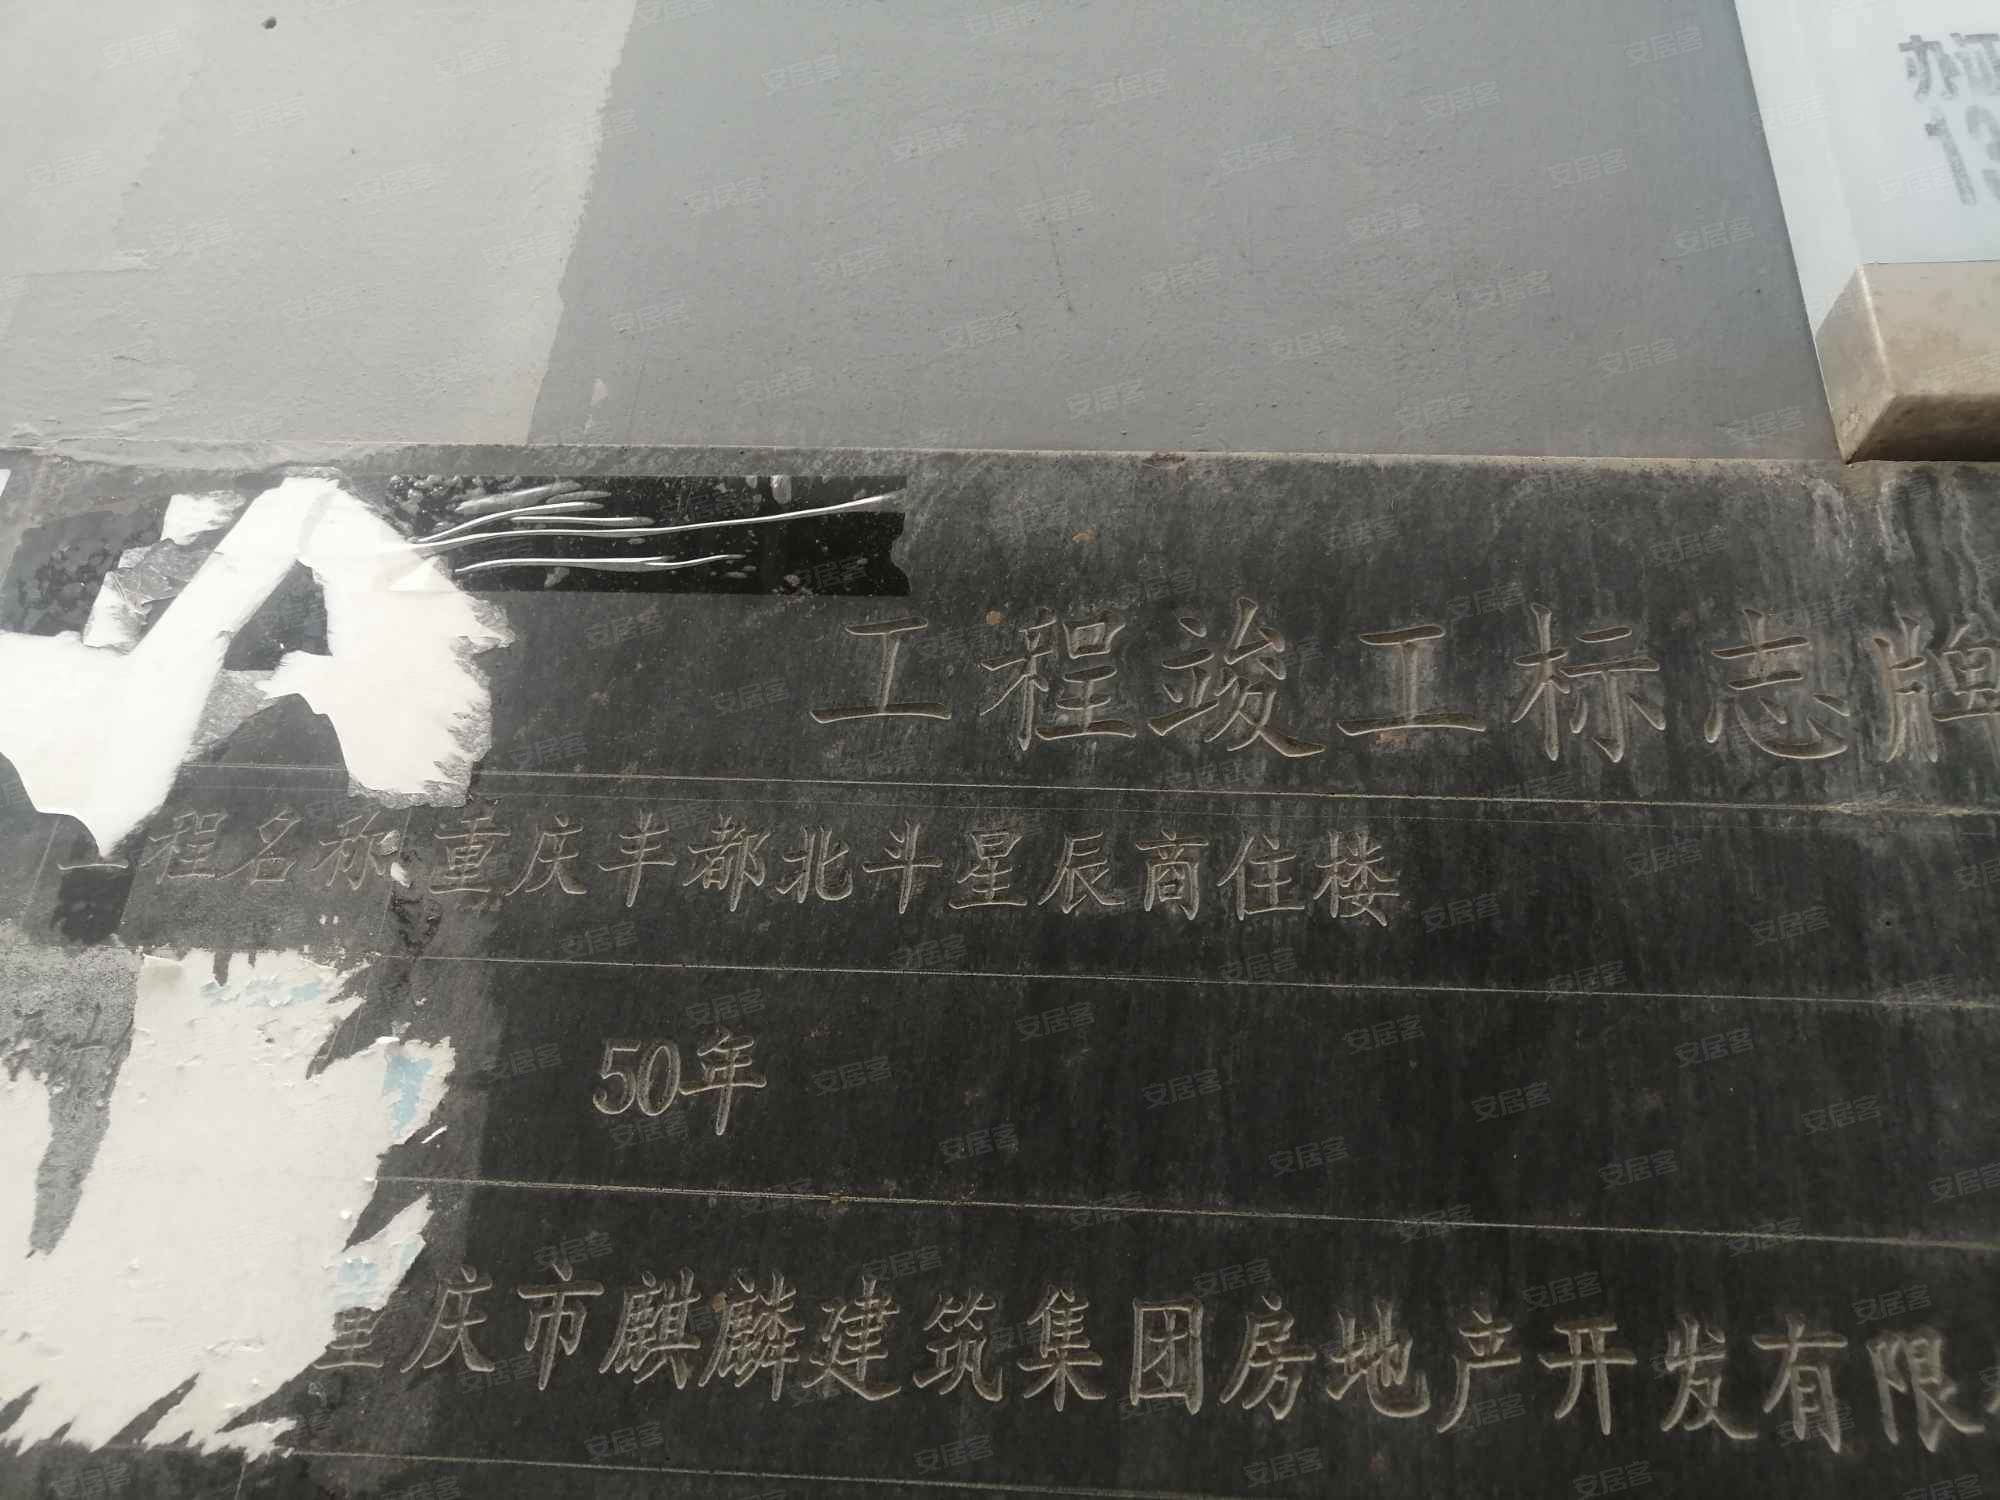 办证
13
工程竣工标志牌
程名称 重庆丰都北斗星辰商住楼
50年
重庆市麒麟建筑集团房地产开发有限
安居客